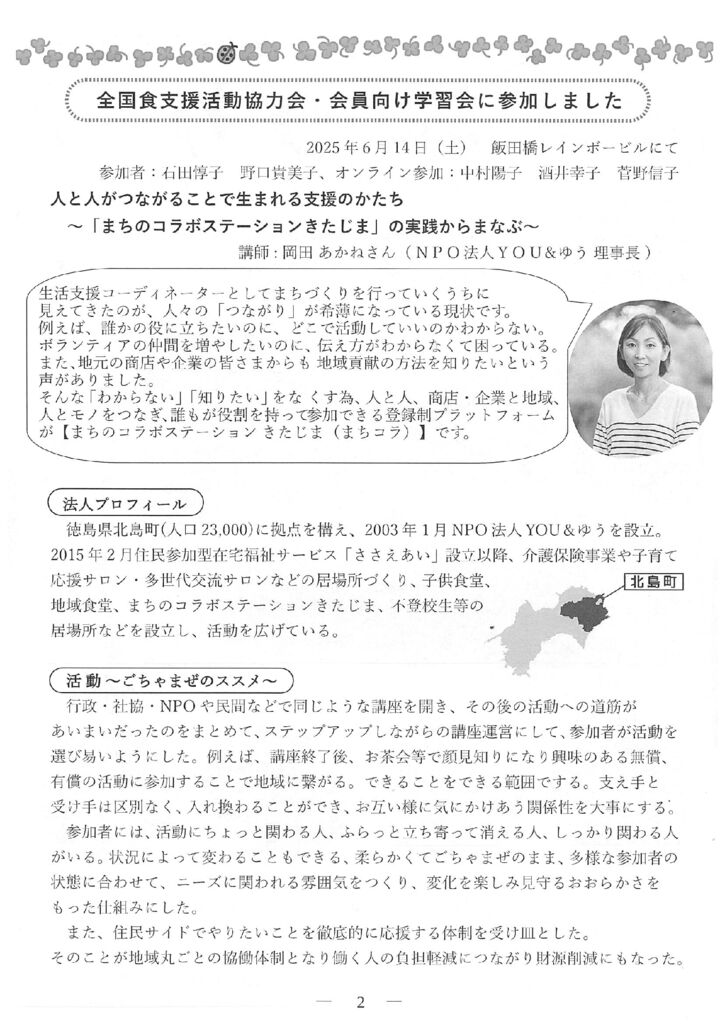 全国食支援活動協力会・会員向け学習会に参加しました
2025年6月14日（土）　飯田橋レインボービルにて
参加者：石田惇子　野口貴美子、オンライン参加：中村陽子　酒井幸子　菅野信子
人と人がつながることで生まれる支援のかたち
～「まちのコラボステーションきたじま」の実践からまなぶ～
講師：岡田 あかねさん（ＮＰＯ法人ＹＯＵ＆ゆう 理事長）
生活支援コーディネーターとしてまちづくりを行っていくうちに
見えてきたのが、人々の「つながり」が希薄になっている現状です。
例えば、誰かの役に立ちたいのに、どこで活動していいのかわからない。
ボランティアの仲間を増やしたいのに、伝え方がわからなくて困っている。
また、地元の商店や企業の皆さまからも 地域貢献の方法を知りたいという
声がありました。
そんな「わからない」「知りたい」をな くす為、人と人、商店・企業と地域、
人とモノをつなぎ、誰もが役割を持って参加できる登録制プラットフォーム
が【まちのコラボステーション きたじま（まちコラ）】です。
法人プロフィール
徳島県北島町(人口 23,000)に拠点を構え、2003 年 1 月 NPO 法人 YOU＆ゆうを設立。
2015 年 2 月住民参加型在宅福祉サービス「ささえあい」設立以降、介護保険事業や子育て
応援サロン・多世代交流サロンなどの居場所づくり、子供食堂、
地域食堂、まちのコラボステーションきたじま、不登校生等の
居場所などを設立し、活動を広げている。
北島町
活動～ごちゃまぜのススメ～
行政・社協・NPO や民間などで同じような講座を開き、その後の活動への道筋が
あいまいだったのをまとめて、ステップアップしながらの講座運営にして、参加者が活動を
選び易いようにした。例えば、講座終了後、お茶会等で顔見知りになり興味のある無償、
有償の活動に参加することで地域に繋がる。できることをできる範囲でする。支え手と
受け手は区別なく、入れ換わることができ、お互い様に気にかけあう関係性を大事にする。
参加者には、活動にちょっと関わる人、ふらっと立ち寄って消える人、しっかり関わる人
がいる。状況によって変わることもできる、柔らかくてごちゃまぜのまま、多様な参加者の
状態に合わせて、ニーズに関われる雰囲気をつくり、変化を楽しみ見守るおおらかさを
もった仕組みにした。
また、住民サイドでやりたいことを徹底的に応援する体制を受け皿とした。
そのことが地域丸ごとの協働体制となり働く人の負担軽減につながり財源削減にもなった。
― 2 ―